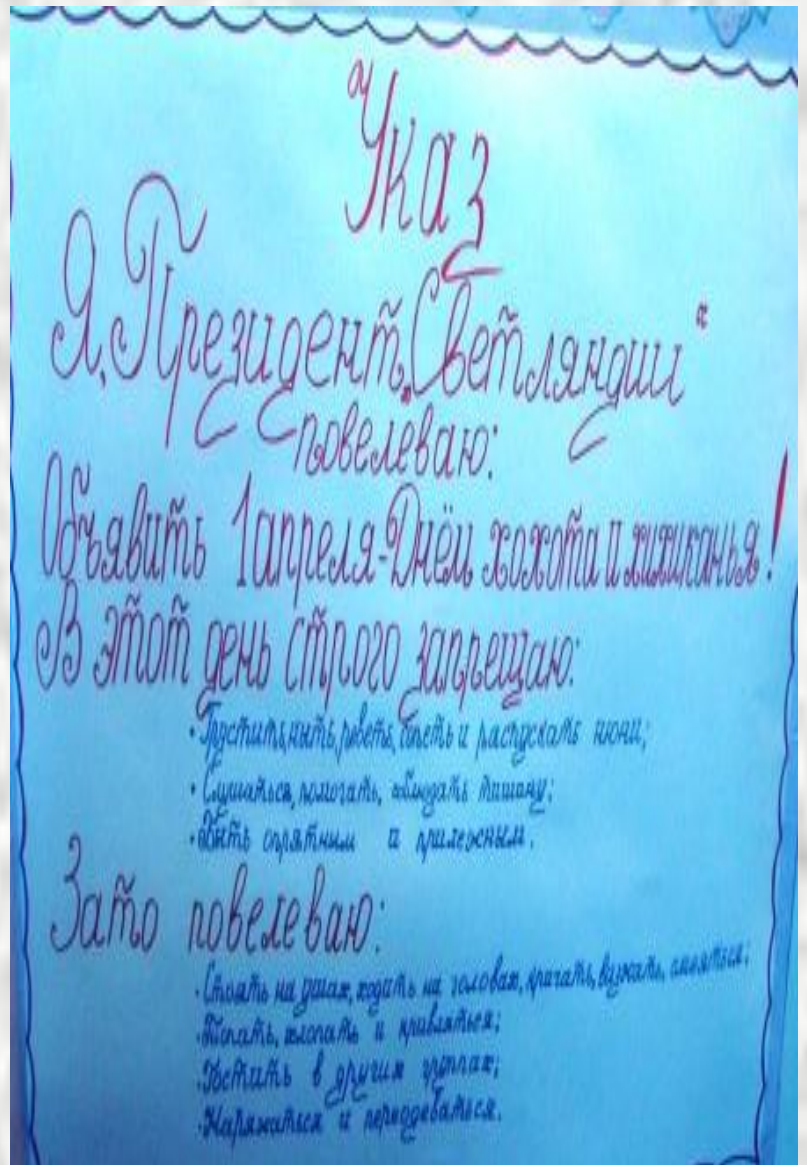 Указ
Я, Президент „Светляндии“
повелеваю:
Объявить 1 апреля-Днём хохота и хихиканья!
В этот день строго запрещаю:
· Грустить, ныть, реветь, болеть и распускать нюни;
· Слушаться, помогать, соблюдать тишину;
· Быть опрятным и прилежным.
Зато повелеваю:
· Стоять на ушах, ходить на головах, кричать, визжать, смеяться;
· Топать, хлопать и кривляться;
· Гостить в других группах;
· Наряжаться и переодеваться.